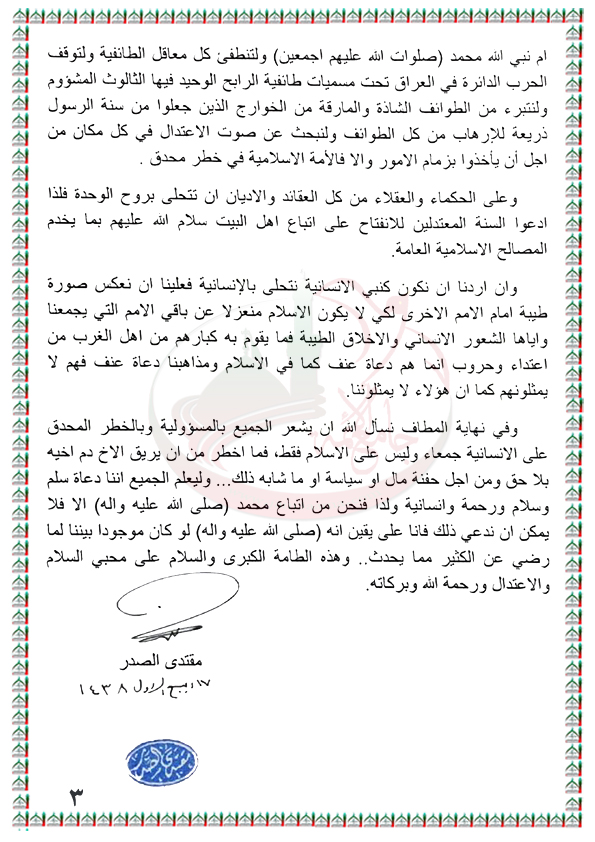 ام نبي الله محمد (صلوات الله عليهم اجمعين) ولتنطفئ كل معاقل الطائفية ولتوقف
الحرب الدائرة في العراق تحت مسميات طائفية الرابح الوحيد فيها الثالوث المشؤوم
ولنتبرء من الطوائف الشاذة والمارقة من الخوارج الذين جعلوا من سنة الرسول
ذريعة للإرهاب من كل الطوائف ولنبحث عن صوت الاعتدال في كل مكان من
اجل أن يأخذوا بزمام الامور والا فالأمة الاسلامية في خطر محدق .
وعلى الحكماء والعقلاء من كل العقائد والاديان ان تتحلى بروح الوحدة فلذا
ادعوا السنة المعتدلين للانفتاح على اتباع اهل البيت سلام الله عليهم بما يخدم
المصالح الاسلامية العامة.
وان اردنا ان نكون كنبي الانسانية نتحلى بالإنسانية فعلينا ان نعكس صورة
طيبة امام الامم الاخرى لكي لا يكون الاسلام منعزلا عن باقي الامم التي يجمعنا
واياها الشعور الانساني والاخلاق الطيبة فما يقوم به كبارهم من اهل الغرب من
اعتداء وحروب انما هم دعاة عنف كما في الاسلام ومذاهبنا دعاة عنف فهم لا
يمثلونهم كما ان هؤلاء لا يمثلوننا.
وفي نهاية المطاف نسأل الله ان يشعر الجميع بالمسؤولية وبالخطر المحدق
على الانسانية جمعاء وليس على الاسلام فقط، فما اخطر من ان يريق الاخ دم اخيه
بلا حق ومن اجل حفنة مال او سياسة او ما شابه ذلك... وليعلم الجميع اننا دعاة سلم
وسلام ورحمة وانسانية ولذا فنحن من اتباع محمد (صلى الله عليه واله) الا فلا
يمكن ان ندعي ذلك فانا على يقين انه (صلى الله عليه واله) لو كان موجودا بيننا لما
رضي عن الكثير مما يحدث.. وهذه الطامة الكبرى والسلام على محبي السلام
والاعتدال ورحمة الله وبركاته.
مقتدى الصدر
١٧ ربيع الاول ١٤٣٨
مقتدى الصدر
٣